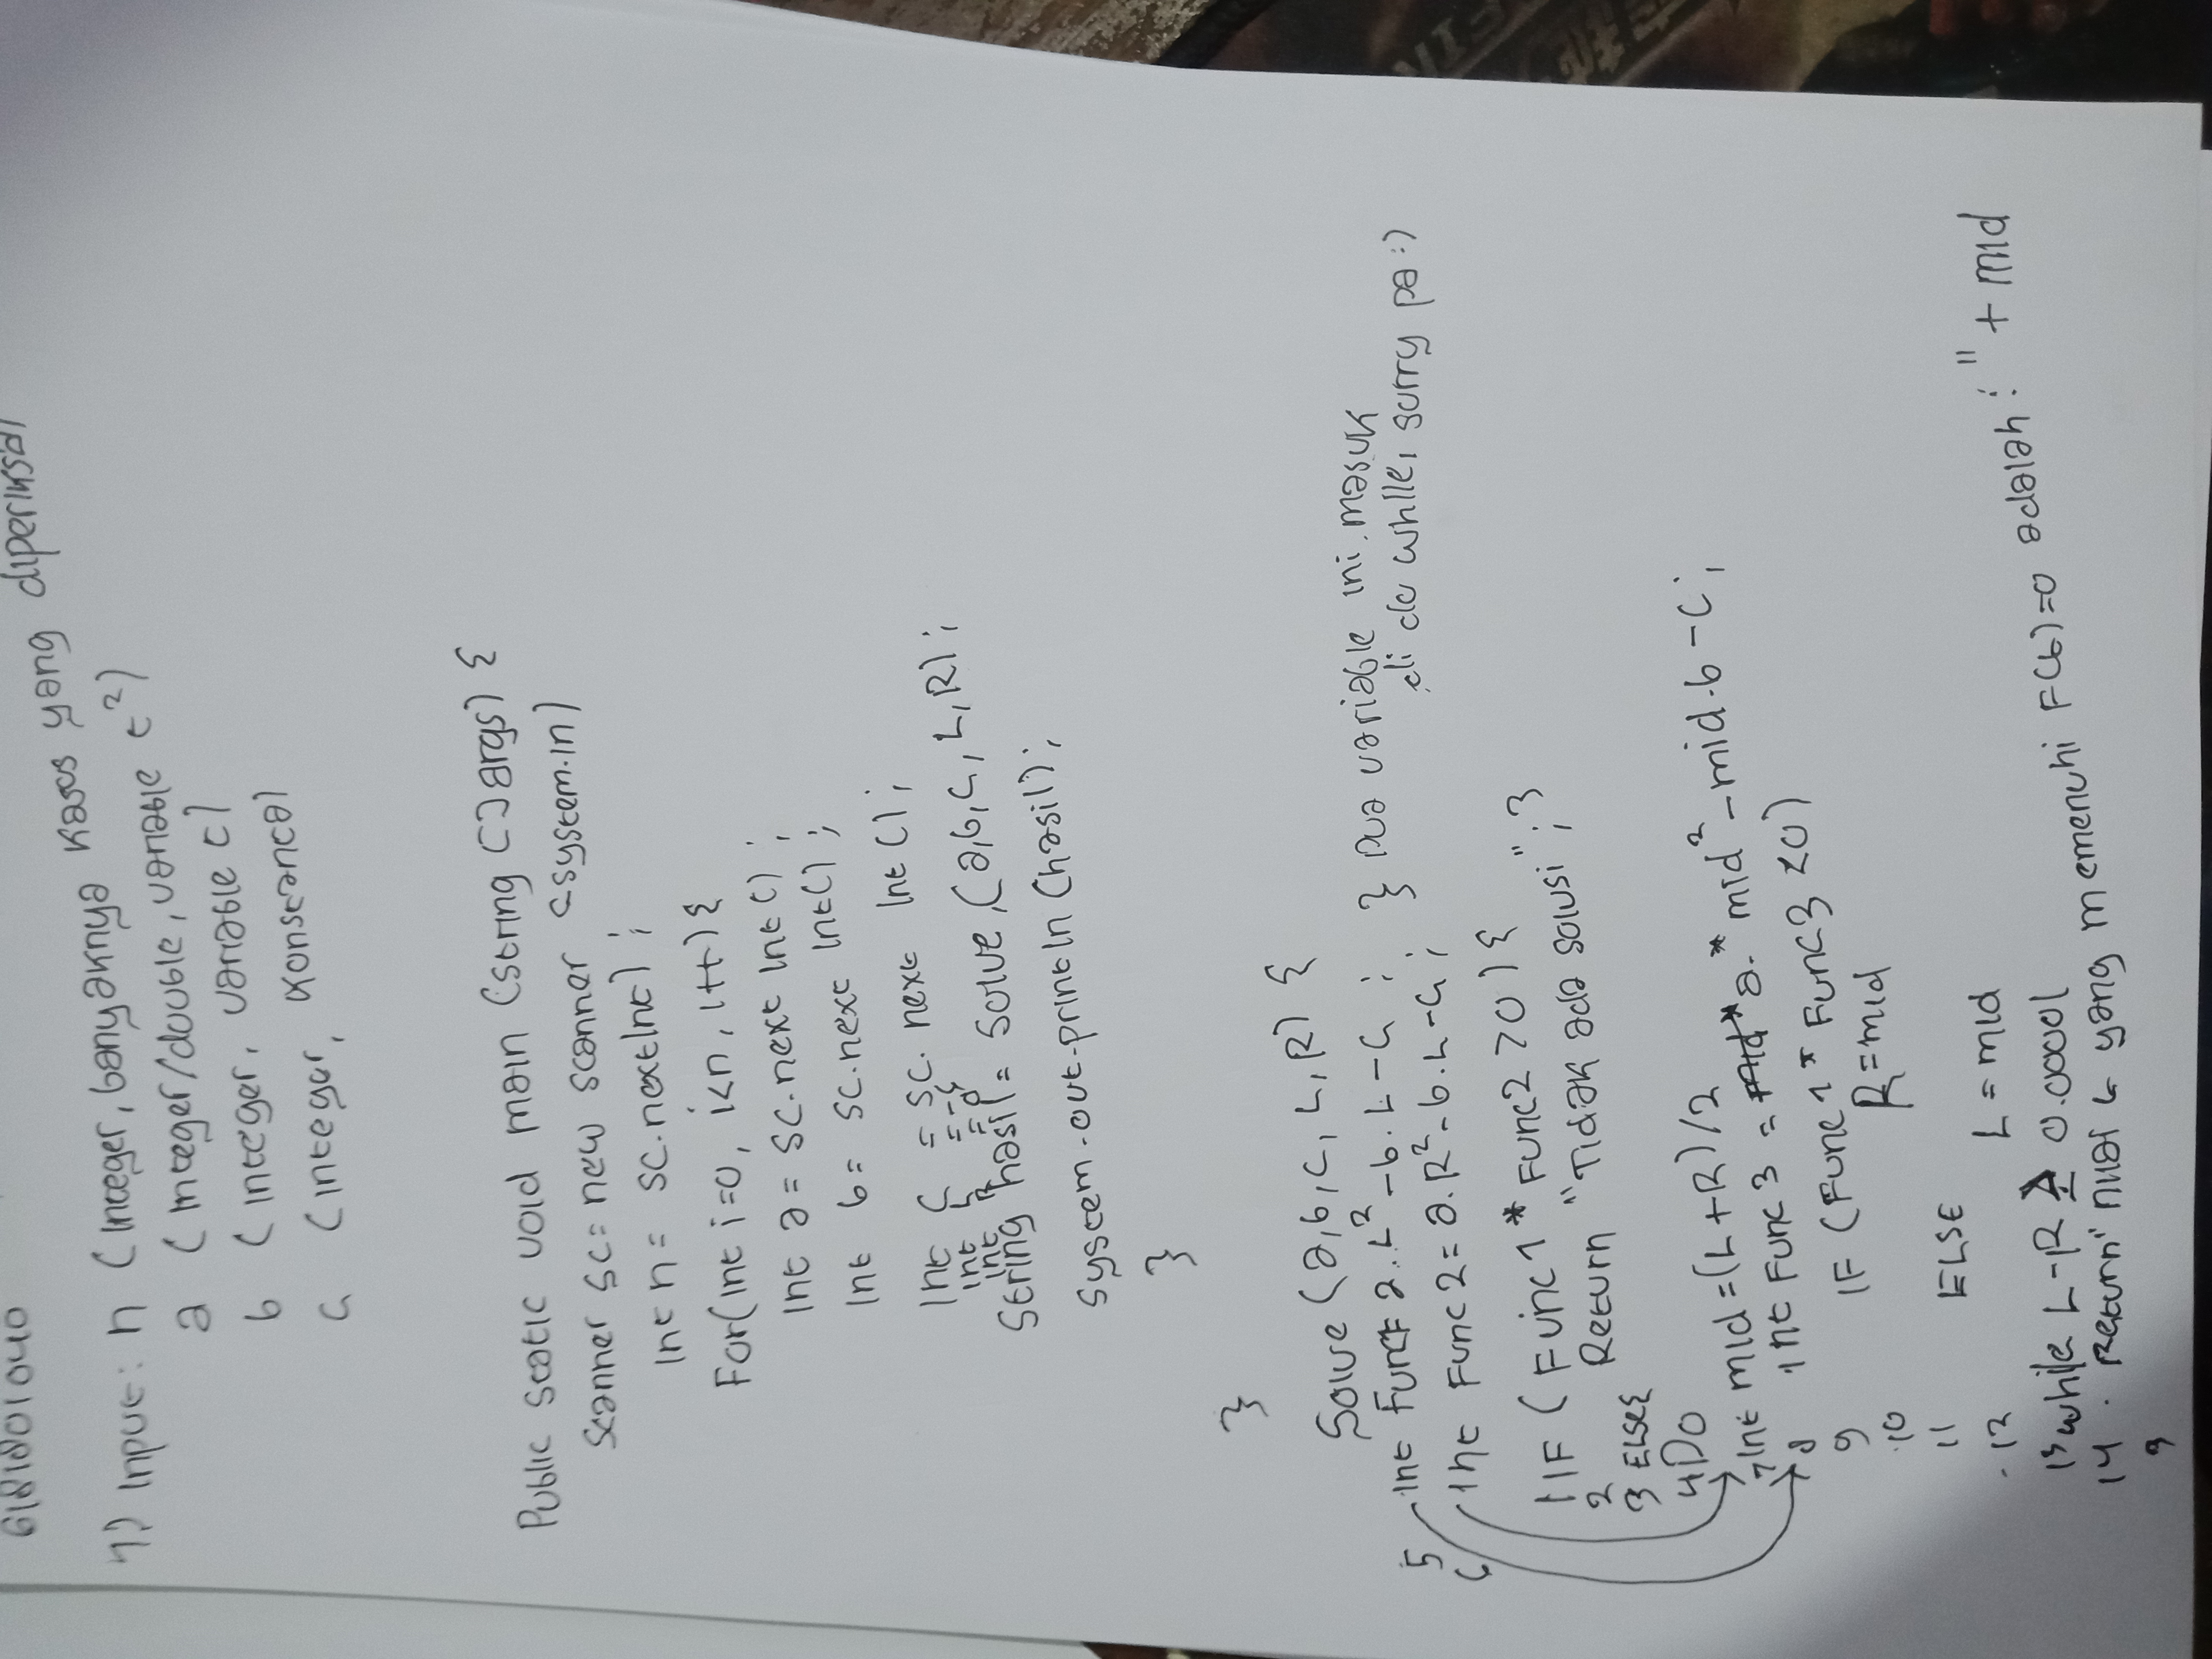 6181801040
1) Input: n (Integer, banyaknya kasus yang diperiksa)
a (Integer/double, variable t²)
b (Integer, variable t)
c (integer, konstanta)
Public static void main (String [] args) {
Scanner sc = new scanner (system.in)
Int n = sc.nextInt) ;
For(int i=0, i<n, i++) {
Int a = sc.next Int () ;
Int b = sc.next Int() ;
Int c = sc. next Int () ;
int L =
int R =
String hasil = Solve (a,b,c, L,R) ;
System.out.println (hasil) ;
}
}
Solve (a,b,c, L, R) {
5 int Func a.. L² - b. L - c ; } Dua variable ini masuk
di do while, sorry pa :)
6 int Func 2 = a. R² - b. L - c ;
1 IF ( Func 1 * Func2 > 0 ) {
2 Return "Tidak ada solusi" ; }
3 ELSE{
4 DO
7 Int mid = (L + R) / 2
8 int Func 3 = a. * mid² - mid . b - c ;
9 IF (Func 1 * Func3 < 0)
10 R = mid
11 ELSE
12 L = mid
13 while L - R ≥ 0.00001
14 . Return "nilai t yang memenuhi F(t)=0 adalah : " + mid
}